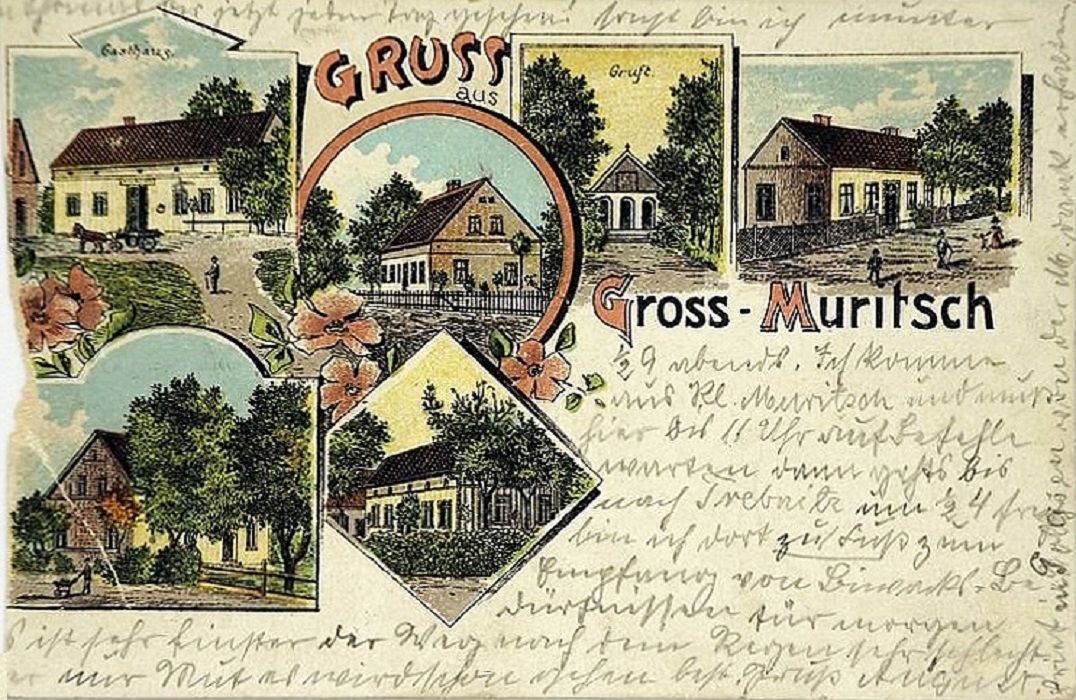 jetzt jeden Tag gesehen! sonst bin ich munter
Gasthaus.
GRUSS
aus
Gruft.
GROSS-MURITSCH
½9 abends. Ich komme
aus Kl. Muritsch und muß
hier bis 11 Uhr auf Befehle
warten dann gehts bis
nach Trebatz um ½4 früh
bin ich dort zu Fuß zum
Empfang von Biwaks-Be
dürfnissen für morgen
s ist sehr finster der Weg nach dem Regen sehr schlecht.
nur Mut es wird schon gehen best. Gruß August